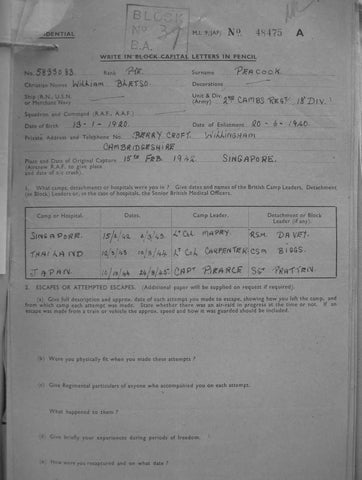 BLOCK
No 3
B.A.
IDENTIAL
M.I. 9/JAP/ No. 48475 A
WRITE IN BLOCK CAPITAL LETTERS IN PENCIL
No. 5833033 Rank Pte. Surname PEACOCK
Christian Names William Decorations
Ship (R.N., U.S.N. or Merchant Navy Unit & Div. (Army) 2ND CAMBS REGT 18 DIV.
Squadron and Command (R.A.F., A.A.F.)
Date of Birth 13-1-1920. Date of Enlistment 20-6-1940.
Private Address and Telephone No. BERRY CROFT. WILLINGHAM
CAMBRIDGESHIRE
Place and Date of Original Capture 15TH FEB 1942 SINGAPORE.
(Aircrew R.A.F. to give place
and date of crash.)
1. What camps, detachments or hospitals were you in? Give dates and names of the British Camp Leaders, Detachment
(or Block) Leaders or, in the case of hospitals, the Senior British Medical Officers.
Camp or Hospital. Dates. Camp Leader. Detachment or Block Leader (if any).
SINGAPORE. 15/2/42 Lt Col MAPEY RSM. DAVEY.
THAILAND Lt Col CARPENTER CSM BIGGS.
JAPAN. CAPT PIRANCE SGT PRATTEN.
2. ESCAPES OR ATTEMPTED ESCAPES. (Additional paper will be supplied on request if required).
(a) Give full description and approx. date of each attempt you made to escape, showing how you left the camp, and
from which camp each attempt was made. State whether there was an air-raid in progress at the time or not. If an
escape was made from a train or vehicle the approx. speed and how it was guarded should be included.
(b) Were you physically fit when you made these attempts?
(c) Give Regimental particulars of anyone who accompanied you on each attempt.
What happened to them?
(d) Give briefly your experiences during periods of freedom.
(e) How were you recaptured and on what date?